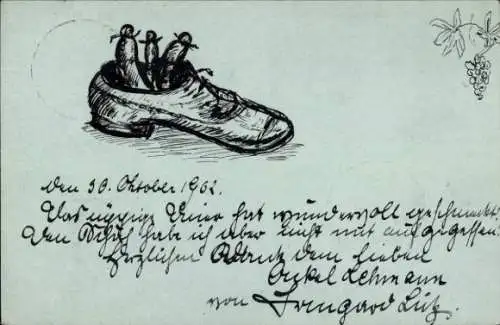 den 30. Oktober 1902.
Das üppige Diner hat wundervoll geschmeckt.
Den Schuh habe ich aber nicht mit aufgegessen.
Herzlichen Dank dem lieben
Onkel Lehmann
von Irmgard Lutz.